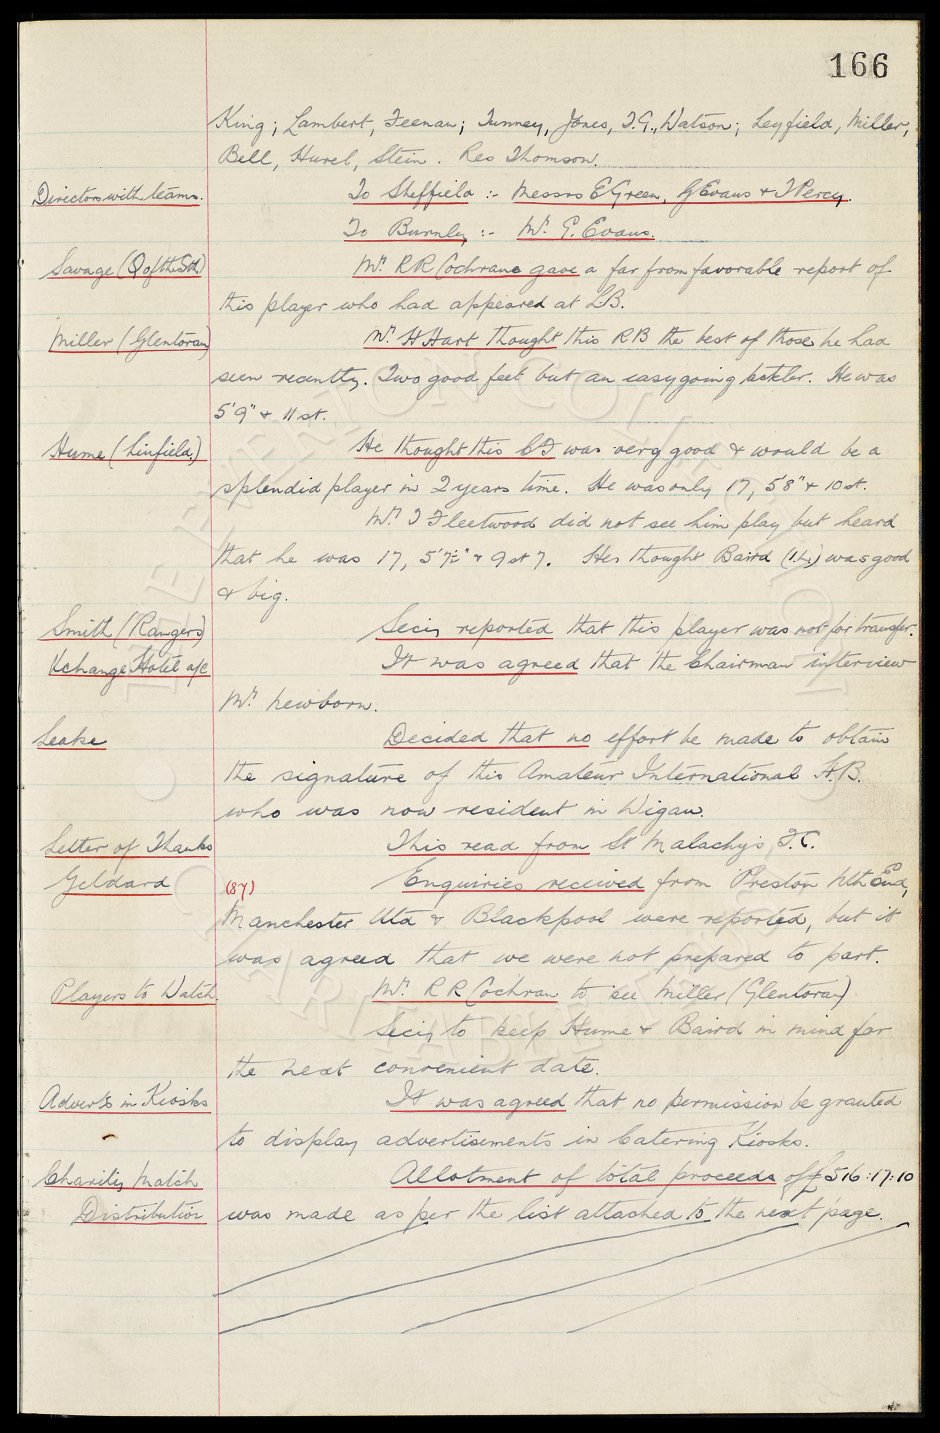 166
King; Lambert, Feenan; Tunney, Jones, T.G., Watson; Leyfield, Miller,
Bell, Hurel, Stein. Res Thomson.
Directors with teams. To Sheffield :- Messrs E Green, G Evans & T Percy.
To Burnley :- Mr. G. Evans.
Savage (Q of the Sth) Mr. R R Cochrane gave a far from favorable report of
this player who had appeared at LB.
Miller (Glentoran) Mr. H Hart thought this RB the best of those he had
seen recently. Two good feet but an easygoing tackler. He was
5'9" & 11 st.
Hume (Linfield.) He thought this CF was very good & would be a
splendid player in 2 years time. He was only 17, 5'8" & 10 st.
Mr. J Fleetwood did not see him play but heard
that he was 17, 5'7½" & 9 st 7. He thought Baird (I.L.) was good
& big.
Smith (Rangers) Secy reported that this player was not for transfer.
Xchange Hotel a/c It was agreed that the Chairman interview
Mr. Newborn.
Leake Decided that no effort be made to obtain
the signature of this Amateur International H.B.
who was now resident in Wigan.
Letter of Thanks This read from St Malachy's, F.C.
Geldard (87) Enquiries received from Preston Nth End,
Manchester Utd & Blackpool were reported, but it
was agreed that we were not prepared to part.
Players to Watch Mr. R R Cochran to see Miller (Glentoran)
Secy to keep Hume & Baird in mind for
the next convenient date.
Adver's in Kiosks It was agreed that no permission be granted
to display advertisements in Catering Kiosks.
Charity Match Allotment of total proceeds of £516:17:10
Distribution was made as per the list attached to the next page.
THE EVERTON COLLECTION
CHARITABLE TRUST